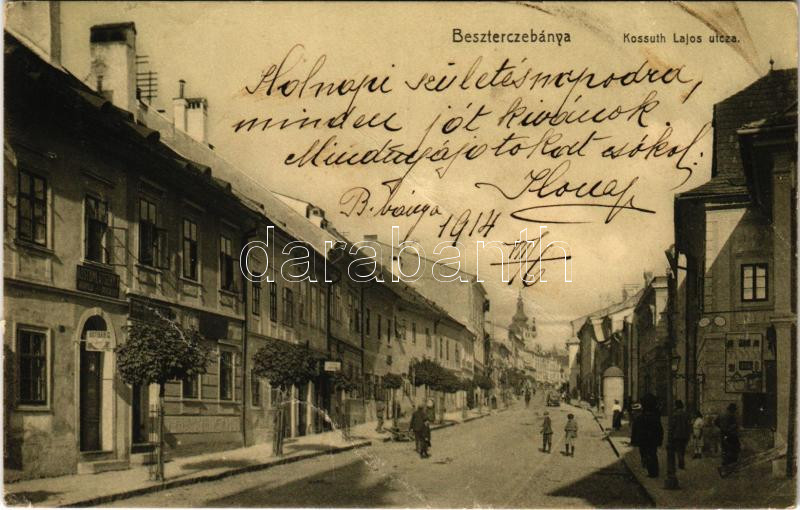 Beszterczebánya
Kossuth Lajos utcza.
Holnapi születésnapodra,
minden jót kívánok.
Mindnyájotokat csókol.
Ilona
B. bánya
1914 VIII/6
darabanth